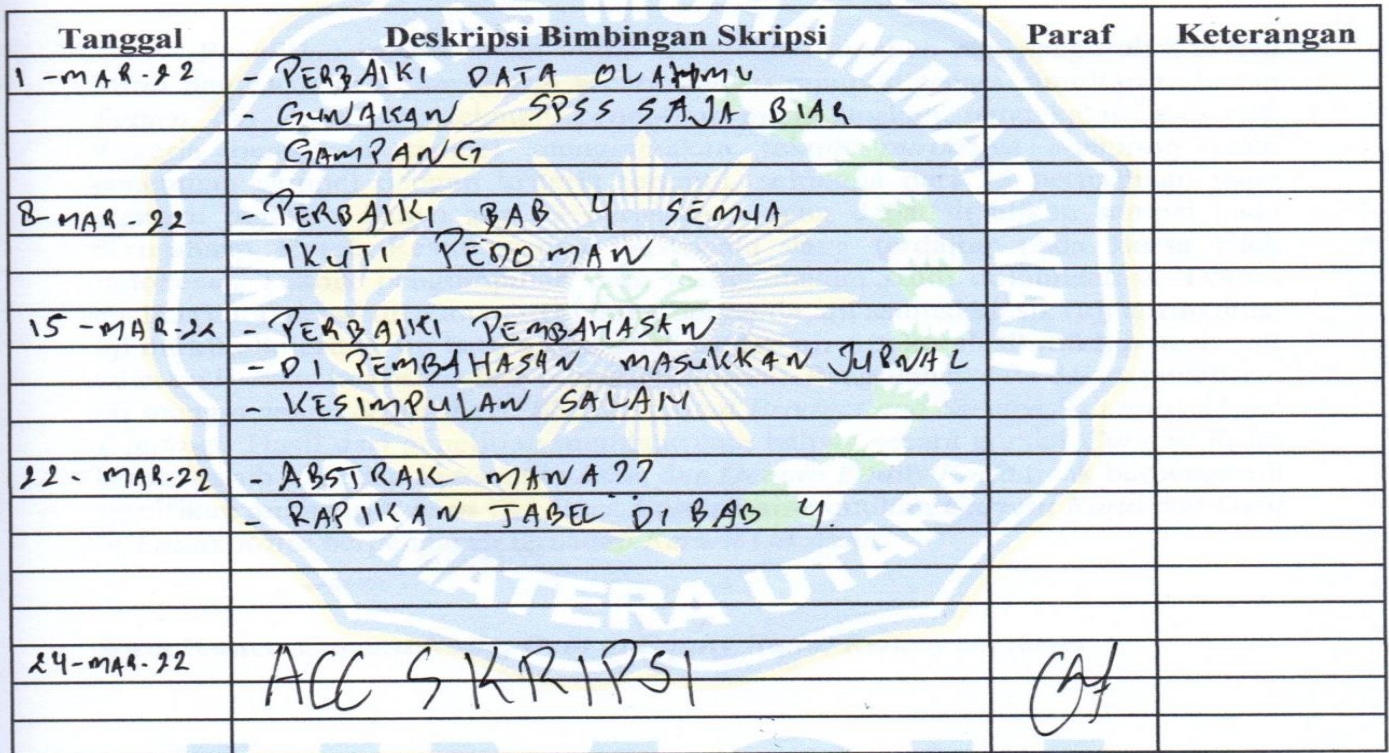 Tanggal Deskripsi Bimbingan Skripsi Paraf Keterangan
1-MAR-22 - PERBAIKI DATA OLAHMU
- GUNAKAN SPSS SAJA BIAR
GAMPANG
8-MAR-22 - PERBAIKI BAB 4 SEMUA
IKUTI PEDOMAN
15-MAR-22 - PERBAIKI PEMBAHASAN
- DI PEMBAHASAN MASUKKAN JURNAL
- KESIMPULAN SALAH
22-MAR-22 - ABSTRAK MANA??
- RAPIKAN TABEL DI BAB 4.
24-MAR-22 ACC SKRIPSI
MUHAMMADIYAH
SUMATERA UTARA